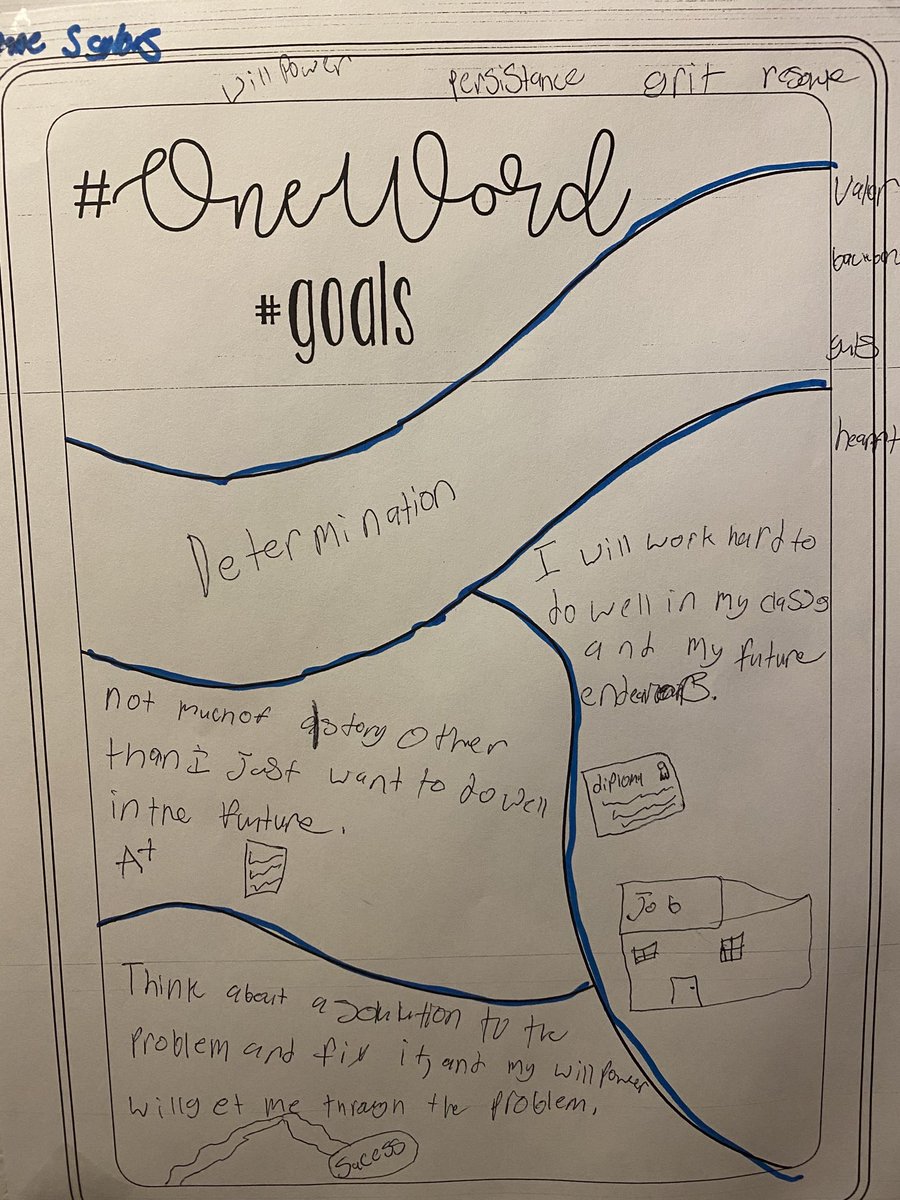 will power persistance grit
Valor
guts
#OneWord
#goals
Determination
I will work hard to
do well in my
and my future
not much of a story other
than I just want to do well
in the furture.
A+
diplomy
Job
Think about a solution to the
problem and fix it, and my will power
will get me through the problem.
Sucess